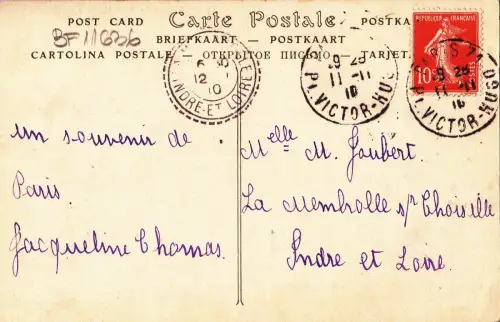 POST CARD Carte Postale POSTKA
BRIEFKAART — POSTKAART
CARTOLINA POSTALE — ОТКРЫТОЕ ПИСЬМО — TARJET
BF 11636
12
10
INDRE-ET-LOIRE
9 25
11-11
10
Pl. VICTOR-HUGO
REPUBLIQUE FRANÇAISE
10
PARIS
9 25
11-11
10
Pl. VICTOR-HUGO
un souvenir de
Paris
Jacqueline Thomas.
Melle M. Joubert.
La Membrolle s/r Choisille
Indre et Loire.